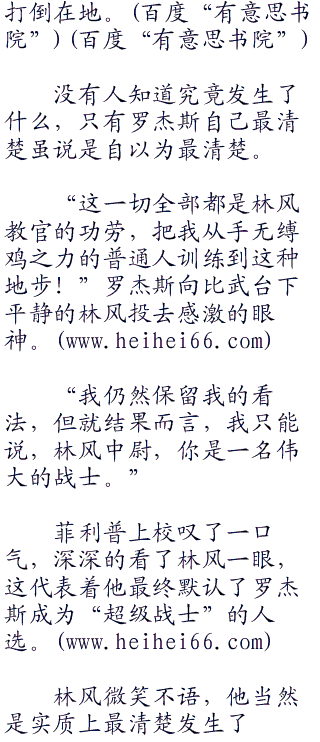 打倒在地。(百度“有意思书
院”)(百度“有意思书院”)
没有人知道究竟发生了
什么，只有罗杰斯自己最清
楚虽说是自以为最清楚。
“这一切全部都是林风
教官的功劳，把我从手无缚
鸡之力的普通人训练到这种
地步！”罗杰斯向比武台下
平静的林风投去感激的眼
神。(www.heihei66.com)
“我仍然保留我的看
法，但就结果而言，我只能
说，林风中尉，你是一名伟
大的战士。”
菲利普上校叹了一口
气，深深的看了林风一眼，
这代表着他最终默认了罗杰
斯成为“超级战士”的人
选。(www.heihei66.com)
林风微笑不语，他当然
是实质上最清楚发生了